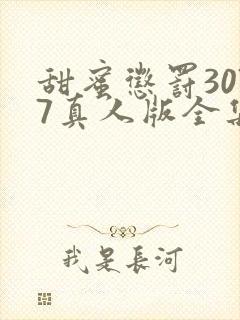 甜蜜懲罰30
7真人版全集
我是長河